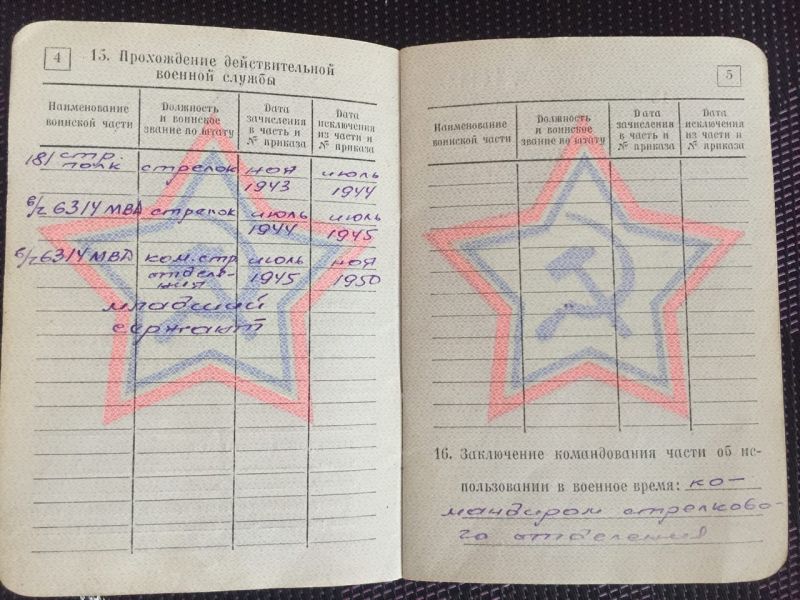 4
15. Прохождение действительной
военной службы
Наименование
воинской части
Должность
и воинское
звание по штату
Дата
зачисления
в часть и
№ приказа
Дата
исключения
из части и
№ приказа
181 стр.
полк
стрелок
ноя
1943
июль
1944
в/ч 6314 МВД
стрелок
июль
1944
июль
1945
в/ч 6314 МВД
ком. стр.
отделе-
ния
июль
1945
ноя
1950
младший
сержант
5
Наименование
воинской части
Должность
и воинское
звание по штату
Дата
зачисления
в часть и
№ приказа
Дата
исключения
из части и
№ приказа
16. Заключение командования части об ис-
пользовании в военное время: ко-
мандиром стрелково-
го отделения